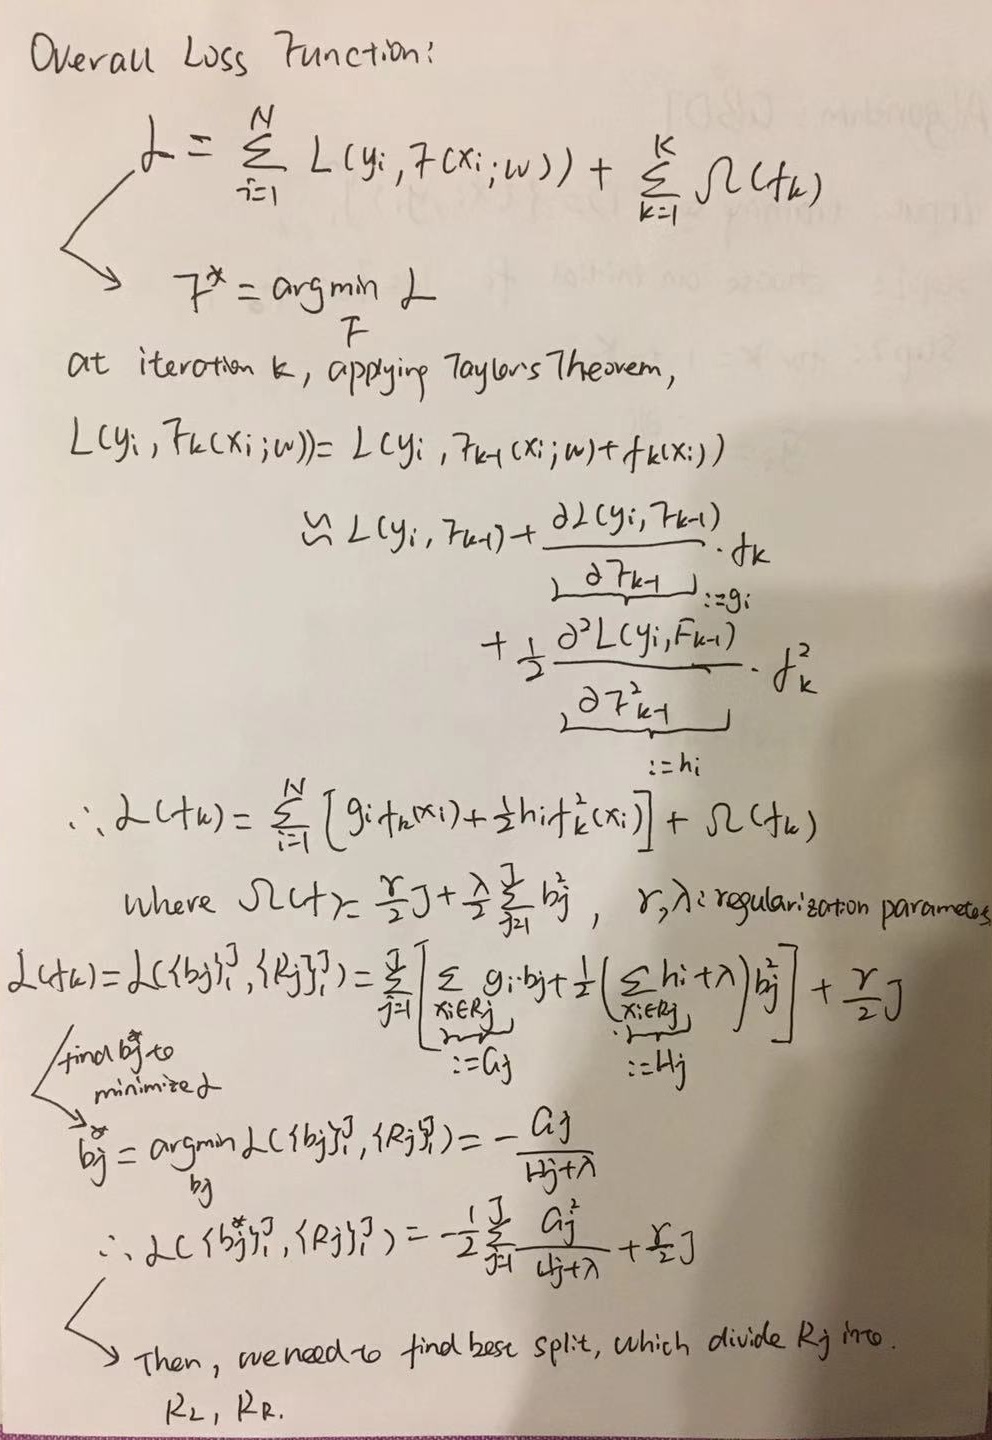 Overall Loss Function:
ℒ = Σ_{i=1}^{N} L(yi, F(xi; w)) + Σ_{k=1}^{K} Ω(fk)
F* = argmin_F ℒ
at iteration k, applying Taylor's Theorem,
L(yi, Fk(xi; w)) = L(yi, Fk-1(xi; w) + fk(xi))
≈ L(yi, Fk-1) + ∂L(yi, Fk-1)/∂Fk-1 · fk
:= gi
+ 1/2 ∂²L(yi, Fk-1)/∂F²k-1 · fk²
:= hi
∴ ℒ(fk) = Σ_{i=1}^{N} [gi fk(xi) + 1/2 hi fk²(xi)] + Ω(fk)
where Ω(f) = γ/2 J + λ/2 Σ_{j=1}^{J} bj², γ, λ: regularization parametes
ℒ(fk) = ℒ({bj}₁ᴶ, {Rj}₁ᴶ) = Σ_{j=1}^{J} [Σ_{xi∈Rj} gi·bj + 1/2 (Σ_{xi∈Rj} hi + λ) bj²] + γ/2 J
:= Gj := Hj
find bj* to
minimize ℒ
bj* = argmin_{bj} ℒ({bj}₁ᴶ, {Rj}₁ᴶ) = - Gj/(Hj+λ)
∴ ℒ({bj*}₁ᴶ, {Rj}₁ᴶ) = -1/2 Σ_{j=1}^{J} Gj²/(Hj+λ) + γ/2 J
Then, we need to find best split, which divide Rj into
RL, RR.